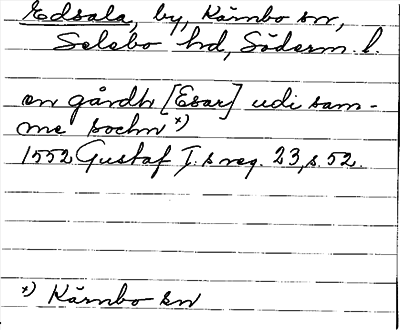 Edsala, by, Kärnbo sn,
Selebo hd, Söderm. l.
en gårdh [Esar] udi sam-
me sochn *)
1552 Gustaf I:s reg. 23, s. 52.
*) Kärnbo sn